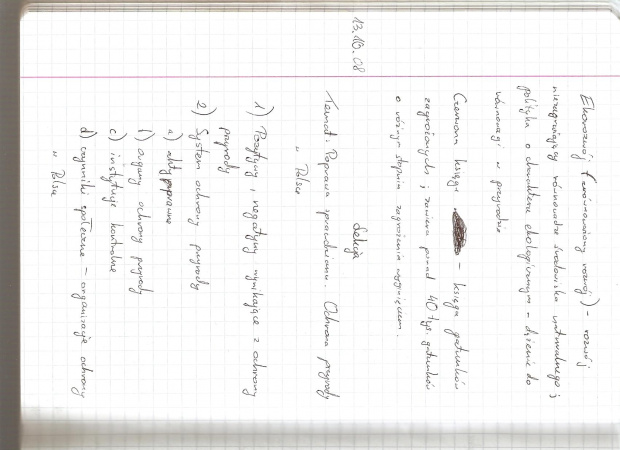 Ekorozwój (zrównoważony rozwój) – rozwój
niezagrażający równowadze środowiska naturalnego;
polityka o charakterze ekologicznym – dążenie do
równowagi w przyrodzie
Czerwona księga – księga gatunków
zagrożonych; zawiera ponad 40 tys. gatunków
o różnym stopniu zagrożenia wyginięciem.
13.10.08
Lekcja
Temat: Poprawa sprawdzianu. Ochrona przyrody
w Polsce
1) Pozytywy i negatywy wynikające z ochrony
przyrody
2) System ochrony przyrody
a) akty prawne
b) organy ochrony przyrody
c) instytucje kontrolne
d) czynniki społeczne – organizacje ochrony
w Polsce